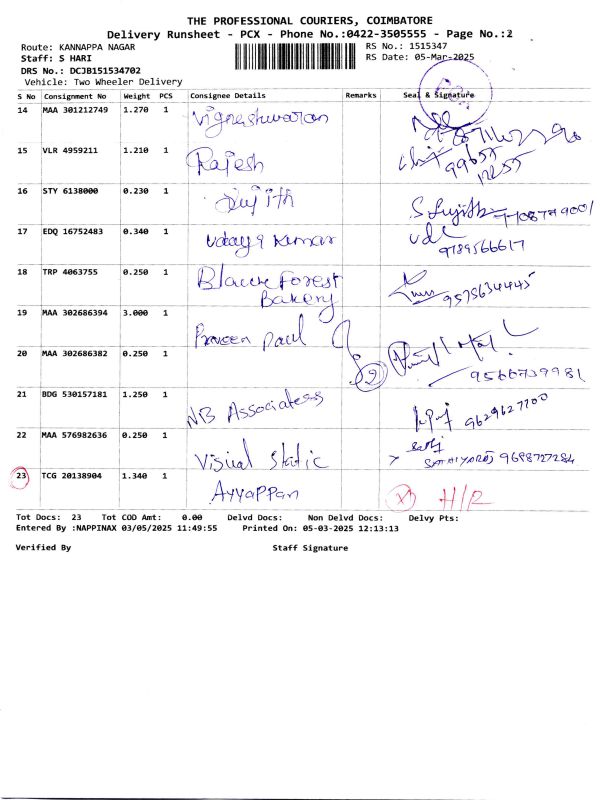 THE PROFESSIONAL COURIERS, COIMBATORE
Delivery Runsheet - PCX - Phone No.:0422-3505555 - Page No.:2
Route: KANNAPPA NAGAR RS No.: 1515347
Staff: S HARI RS Date: 05-Mar-2025
DRS No.: DCJB151534702
Vehicle: Two Wheeler Delivery
S No Consignment No Weight PCS Consignee Details Remarks Seal & Signature
14 MAA 301212749 1.270 1 Vigneshwaran
15 VLR 4959211 1.210 1 Rajesh 99655
12255
16 STY 6138000 0.230 1 Sujith S Sujith
17 EDQ 16752483 0.340 1 udaya Kumar udc
9789566617
18 TRP 4063755 0.250 1 Blaure Forest
Bakery 9575634445
19 MAA 302686394 3.000 1 Praveen paul
20 MAA 302686382 0.250 1 2 9566739981
21 BDG 530157181 1.250 1 NB Associates 9629627700
22 MAA 576982636 0.250 1 Visual Static SATHIYARAJ 9698727284
23 TCG 20138904 1.340 1 Ayyappan X H/R
Tot Docs: 23 Tot COD Amt: 0.00 Delvd Docs: Non Delvd Docs: Delvy Pts:
Entered By :NAPPINAX 03/05/2025 11:49:55 Printed On: 05-03-2025 12:13:13
Verified By Staff Signature